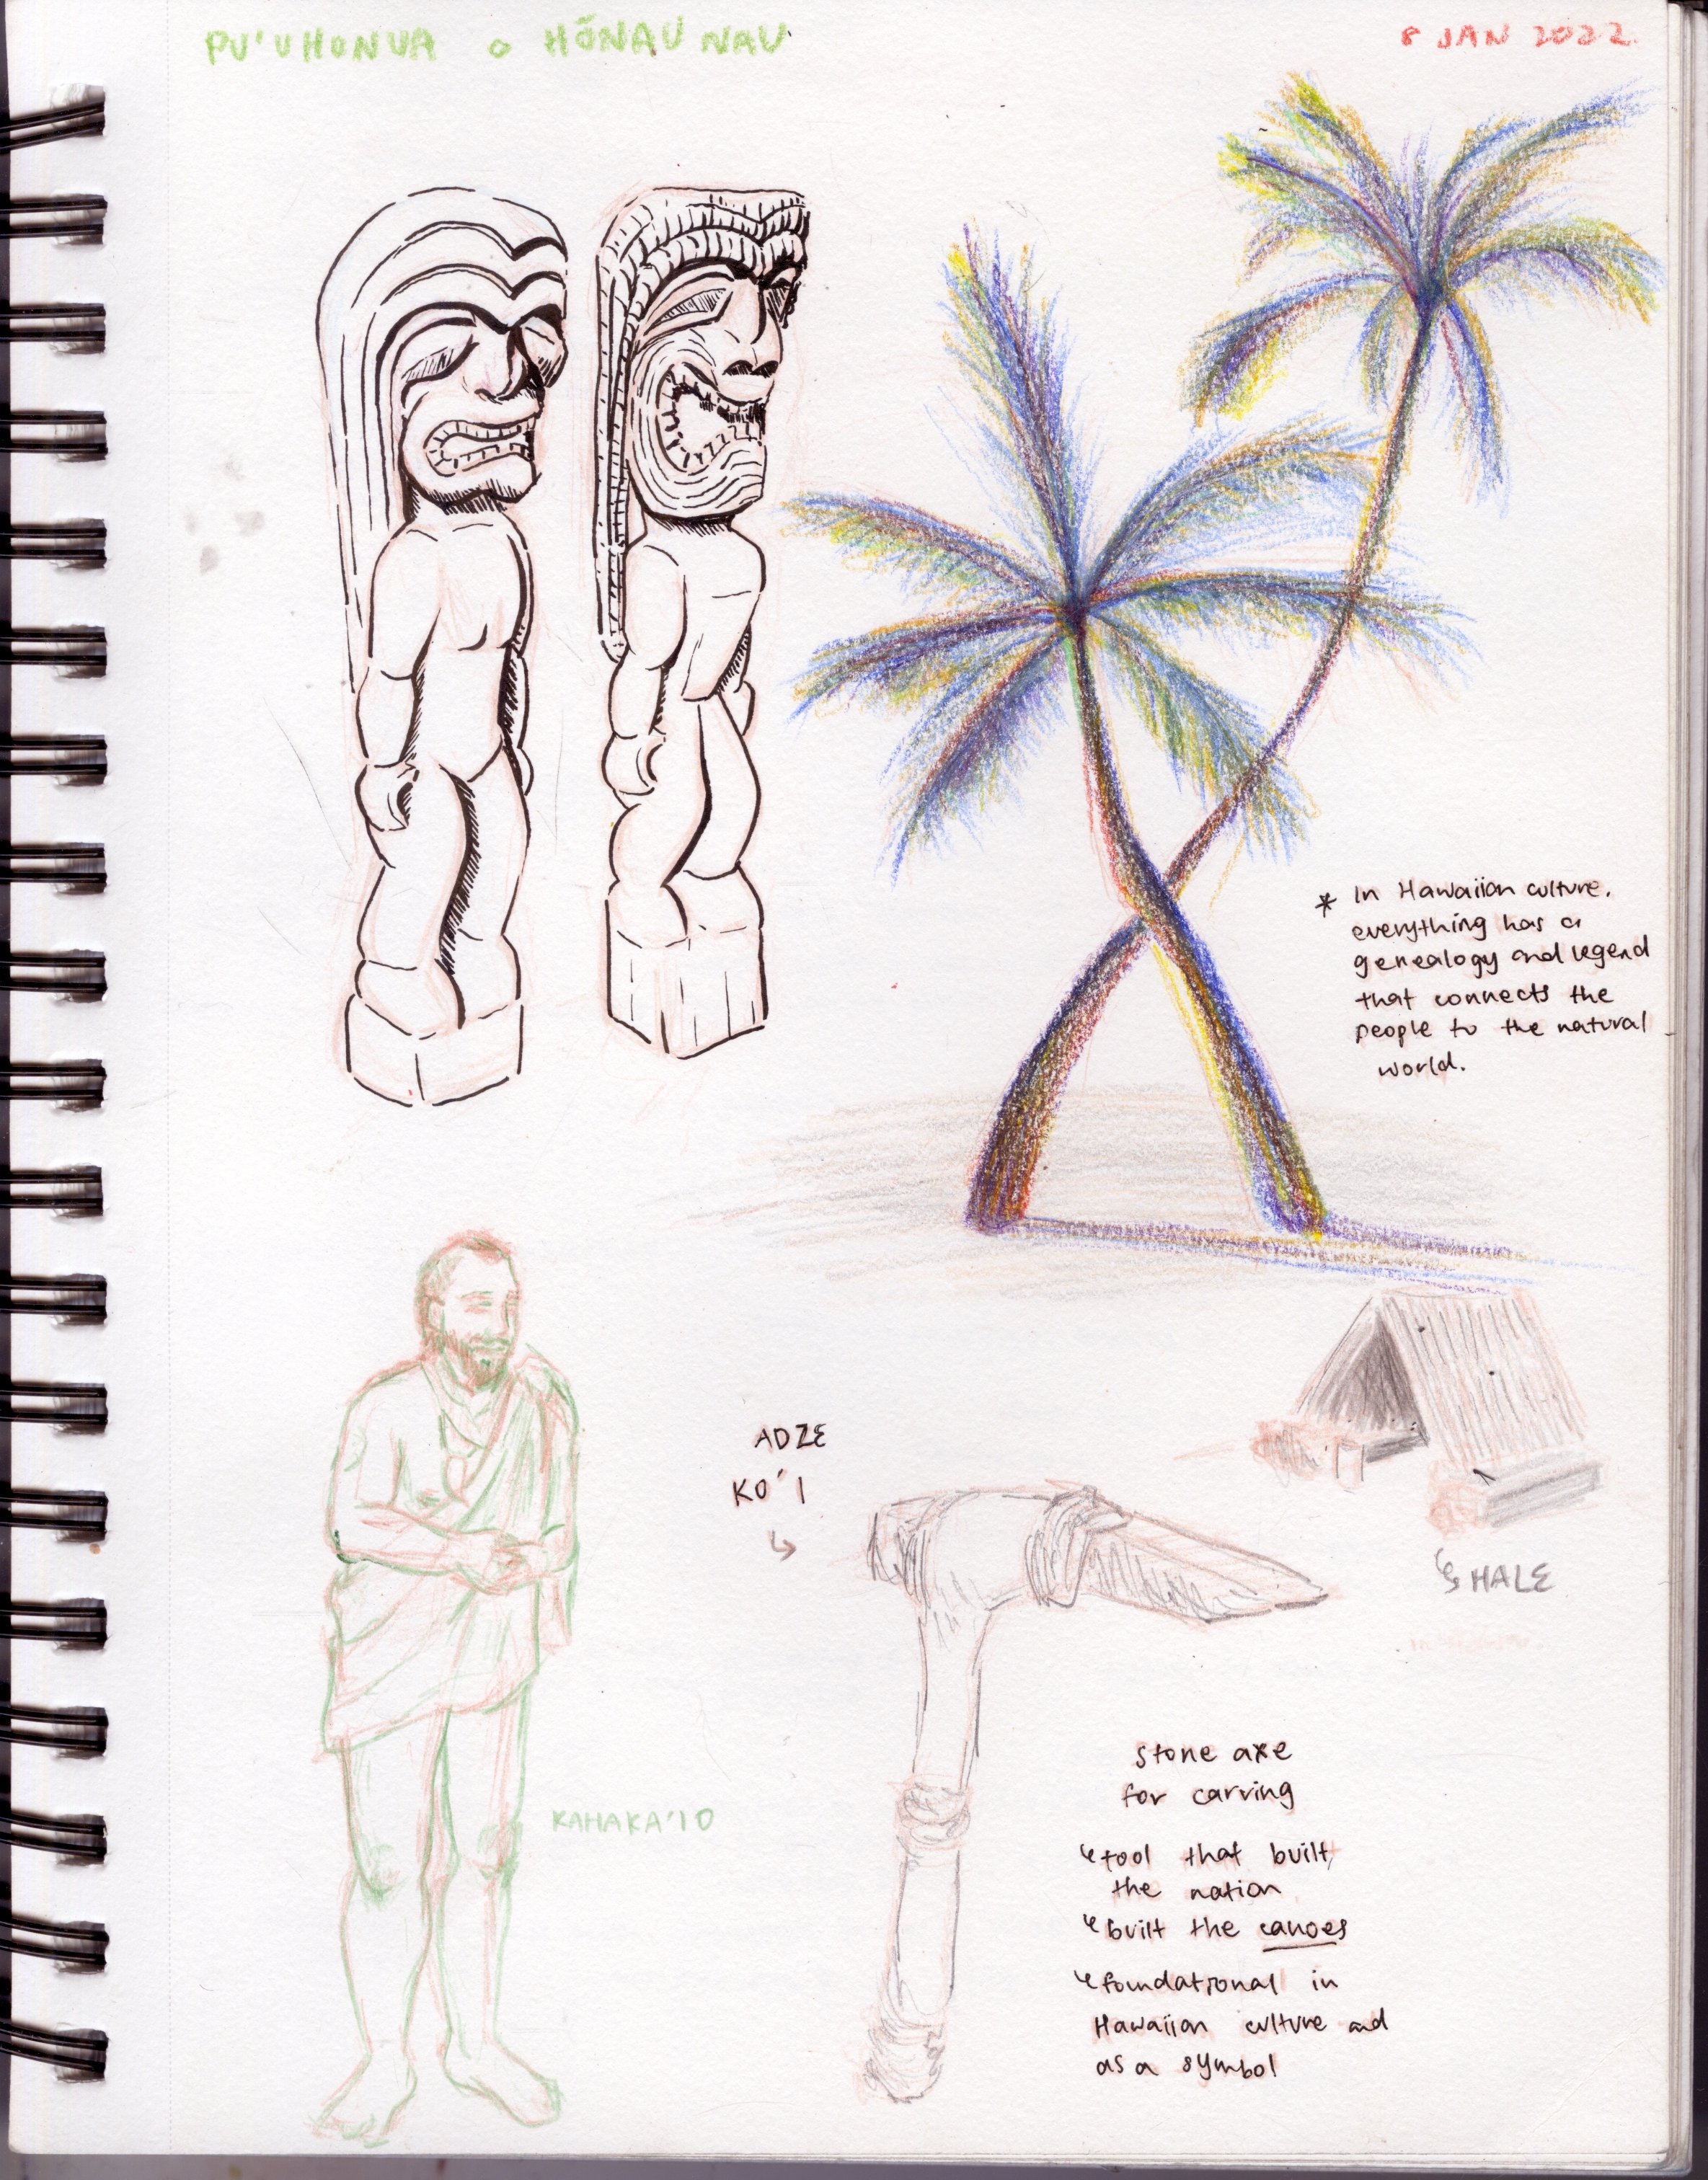 PU'UHONUA O HŌNAUNAU
8 JAN 2022
* In Hawaiian culture,
everything has a
genealogy and legend
that connects the
people to the natural
world.
ADZE
KO'I
HALE
KAHAKA'IO
stone axe
for carving
tool that built
the nation
built the canoes
foundational in
Hawaiian culture and
as a symbol